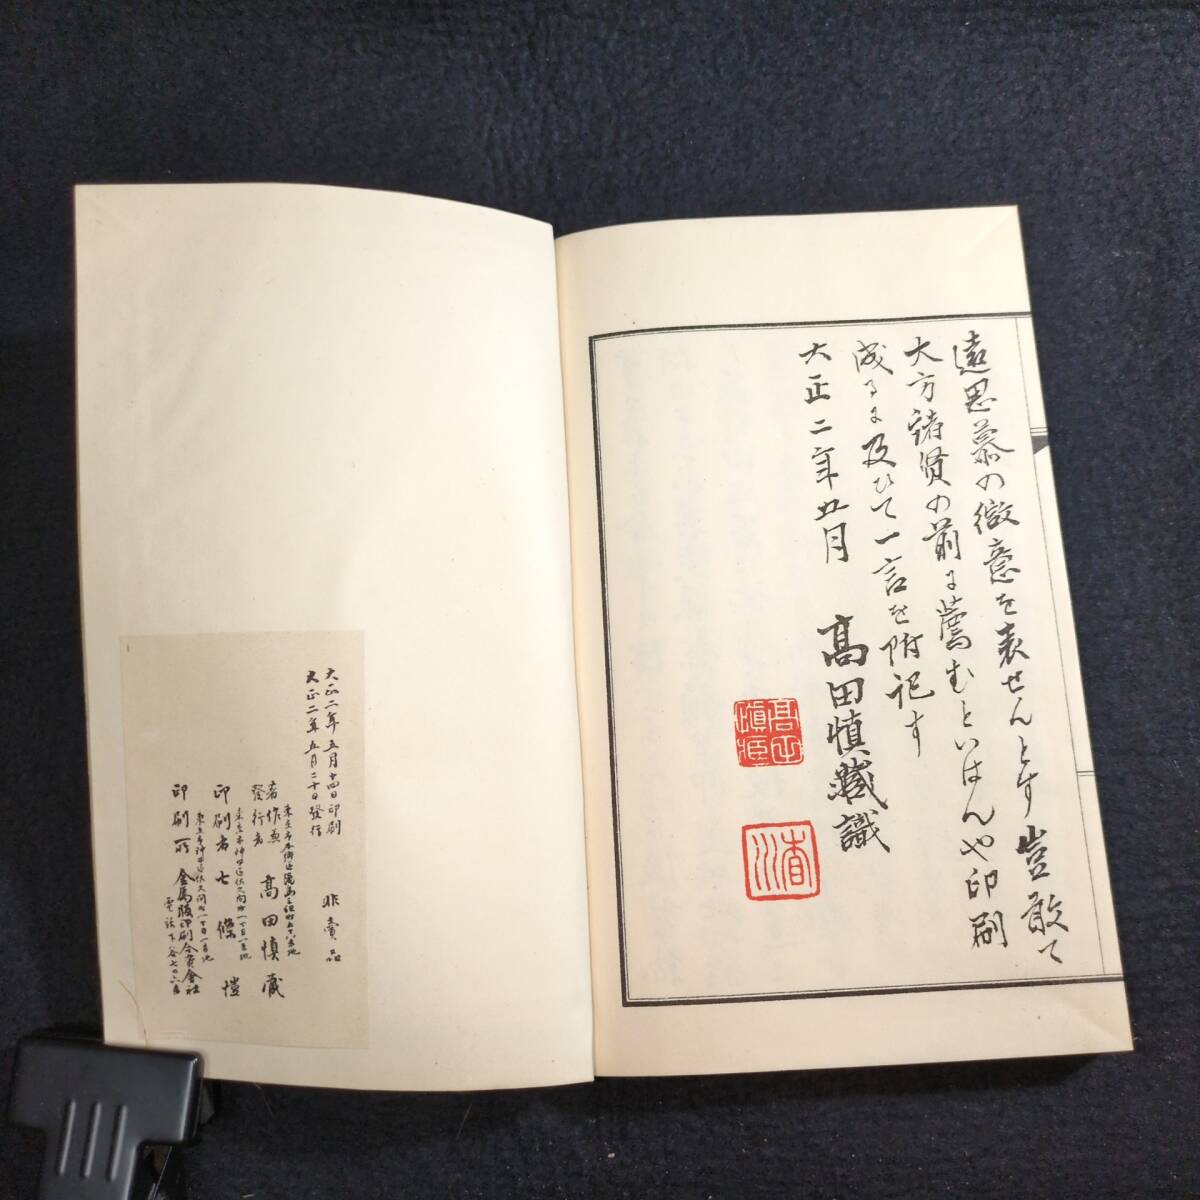 遠思慕の微意を表せんとす豈敢て
大方諸賢の前に薦むといはんや印刷
成るに及ひて一言を附記す
大正二年五月
高田慎蔵識
大正二年五月十四日印刷
大正二年五月二十日發行
非賣品
東京市本郷區湯島三組町五十八番地
著作兼
發行者
高田慎蔵
印刷者
七條愷
印刷所
金属版印刷合資会社